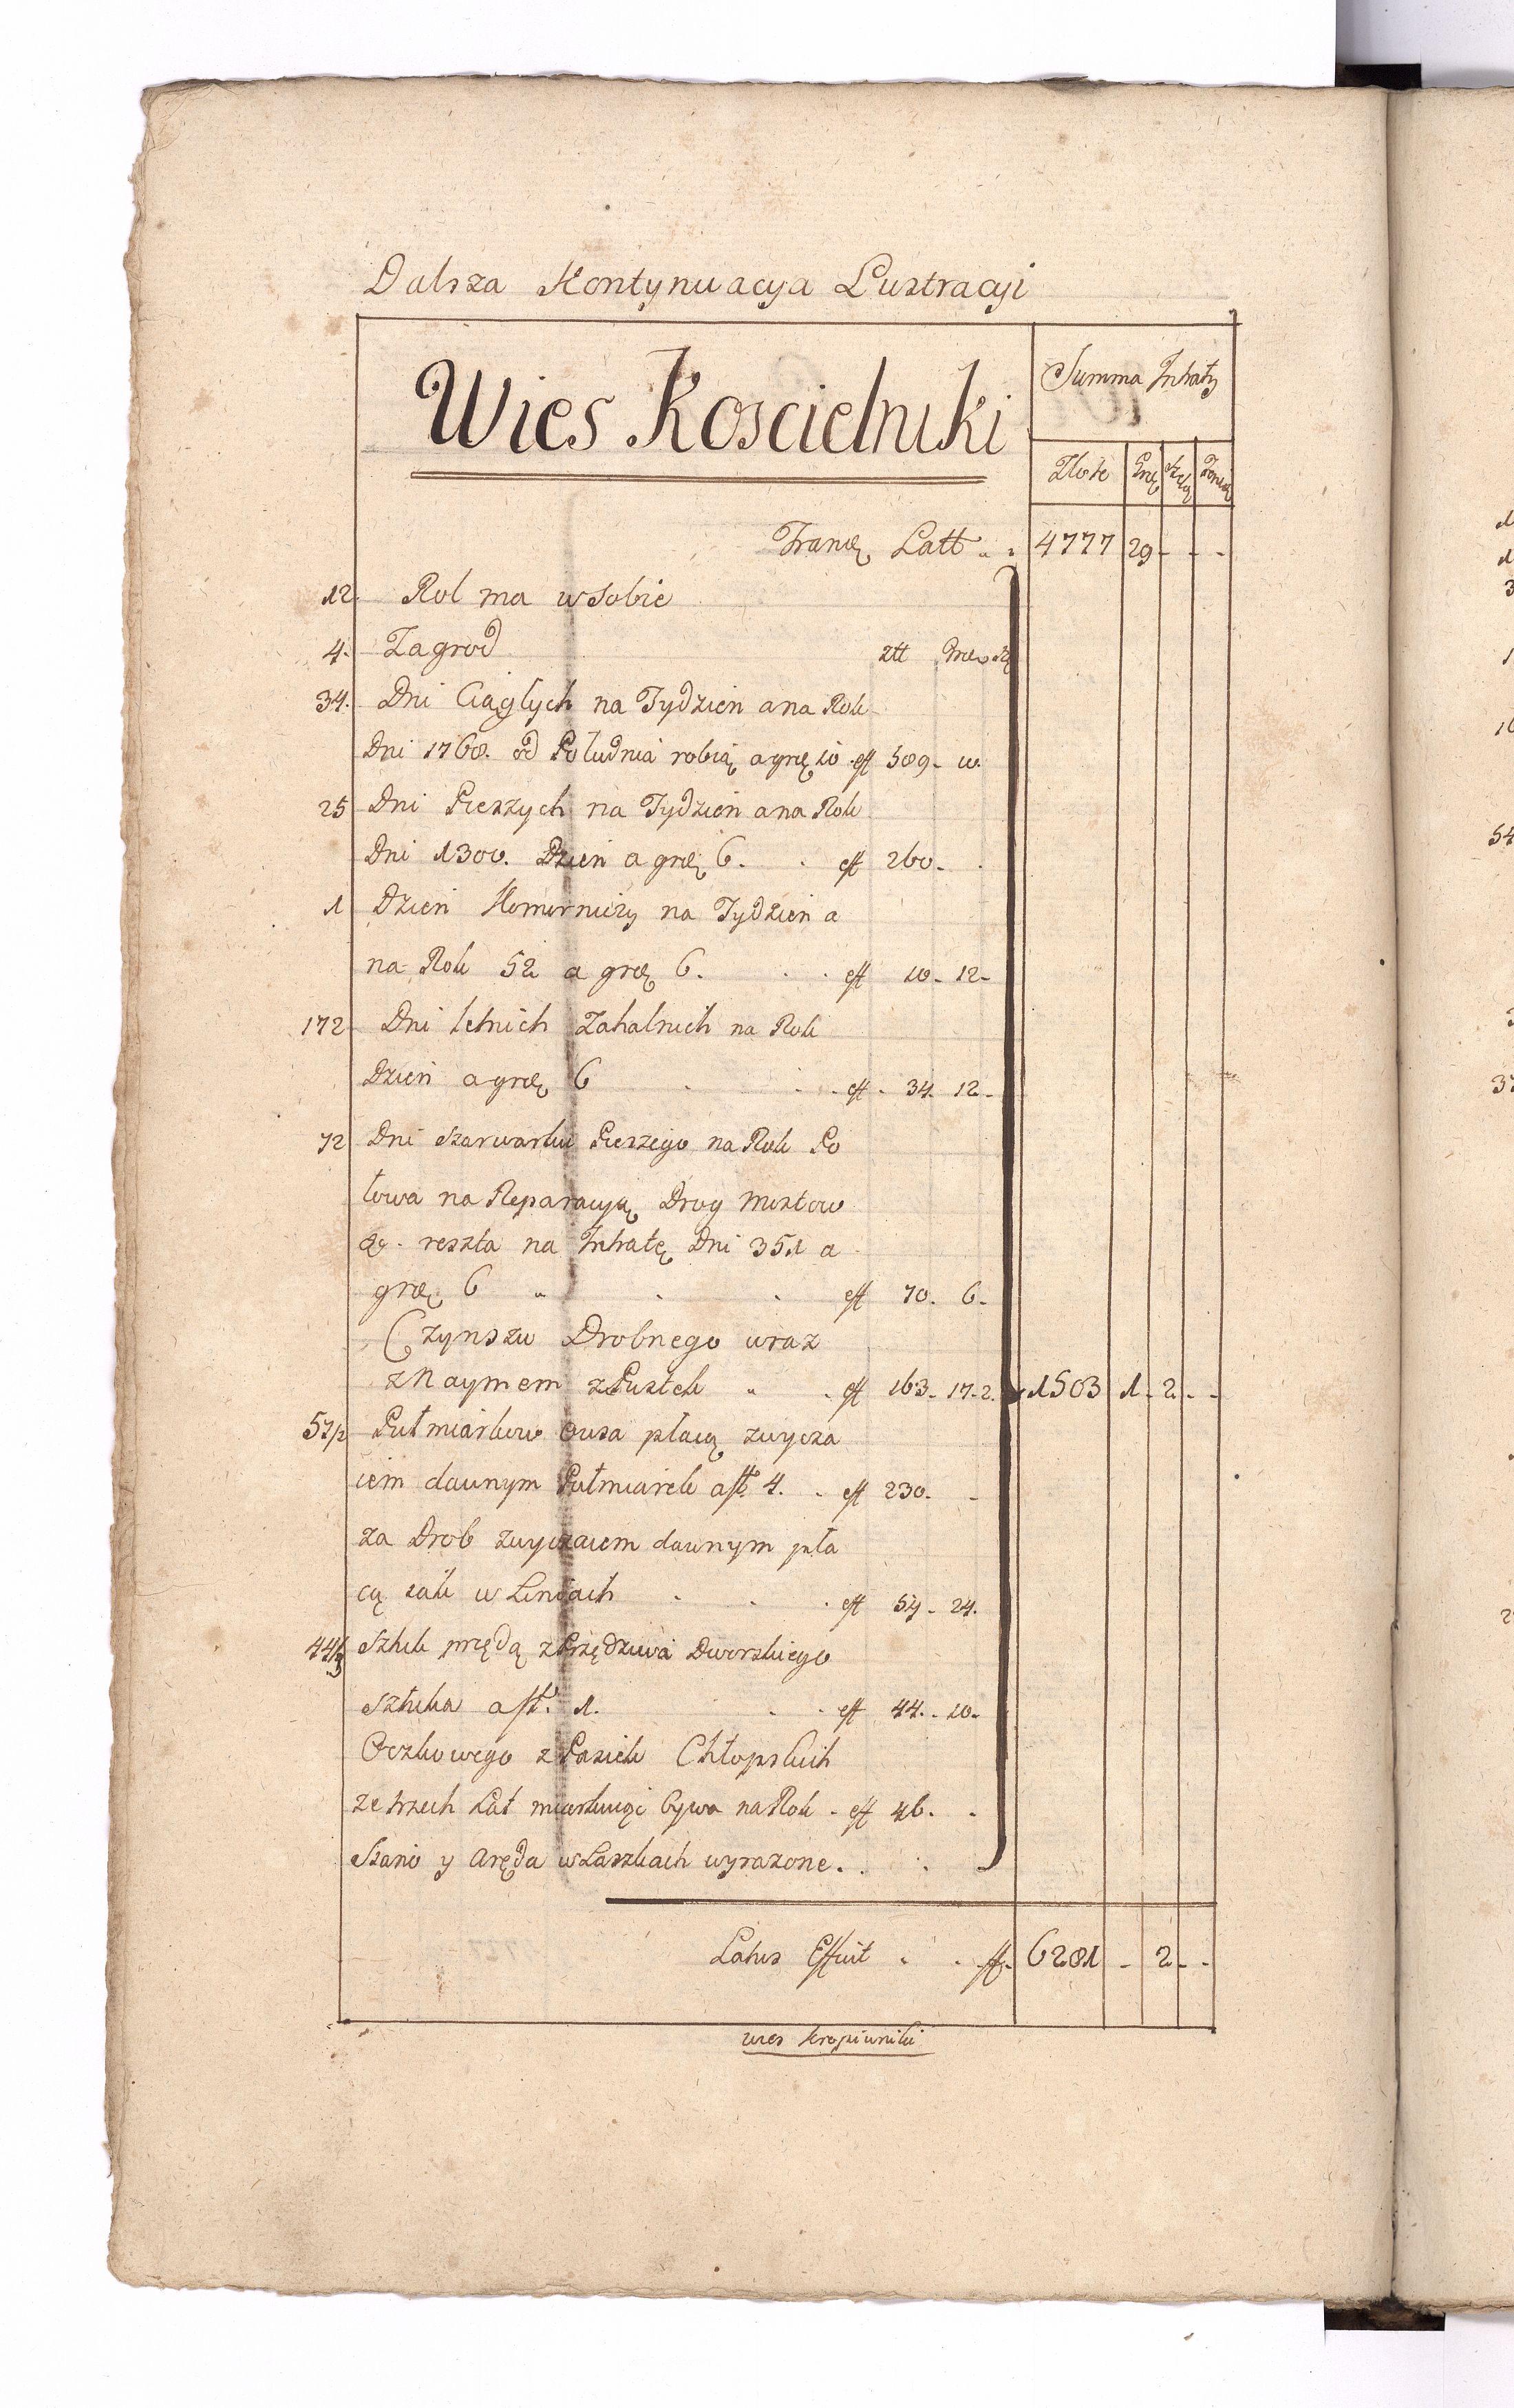 Dalsza Kontynuacyja Lustracyi
Wies Koscielniki
Summa Intraty
Złote Grze Szelą
Transz Latt 4777 29 - - -
12. Rol ma w sobie
4. Zagrod złł Grze
34. Dni Ciąglych na Tydzien a na Rok
Dni 1768. od Poludnia robią a grze 10 eff 589 - 10.
25 Dni Pieszych na Tydzien a na Rok
Dni 1300. Dzien a grze 6. eff 260 -
1 Dzien Komorniczy na Tydzien a
na Rok 52 a grze 6. eff 10 - 12 -
172 Dni letnich Zahalnich na Rok
Dzien a grze 6 eff 34. 12 -
72 Dni szarwarku Pieszego na Rok Po
łowa na Reparacyią Drog mostow
& reszta na Intratę Dni 351 a
grze 6 eff 70. 6 -
Czynszu Drobnego wraz
z Naymem z Pustek eff 163 - 17 - 2. 1503 1 - 2 - -
57/2 Pułmiarkow owsa płacą zwycza
iem dawnym Pułmiarek a fł. 4. eff 230 -
za Drob zwyczaiem dawnym pła
cą iak w Leniach eff 54 - 24.
44/3 Sztuk przędą z Przędziwa Dworskiego
Sztuka a fł. 1. eff 44. - 10 -
Oczkowego z Pasiek Chłopskich
ze trzech Lat miarkuiąc bywa na Rok - eff 46. -
Siano y Aręda w Laszkach wyrazone.
Latus Efficit ff. 6281 - 2 - -
wies kropiwniki